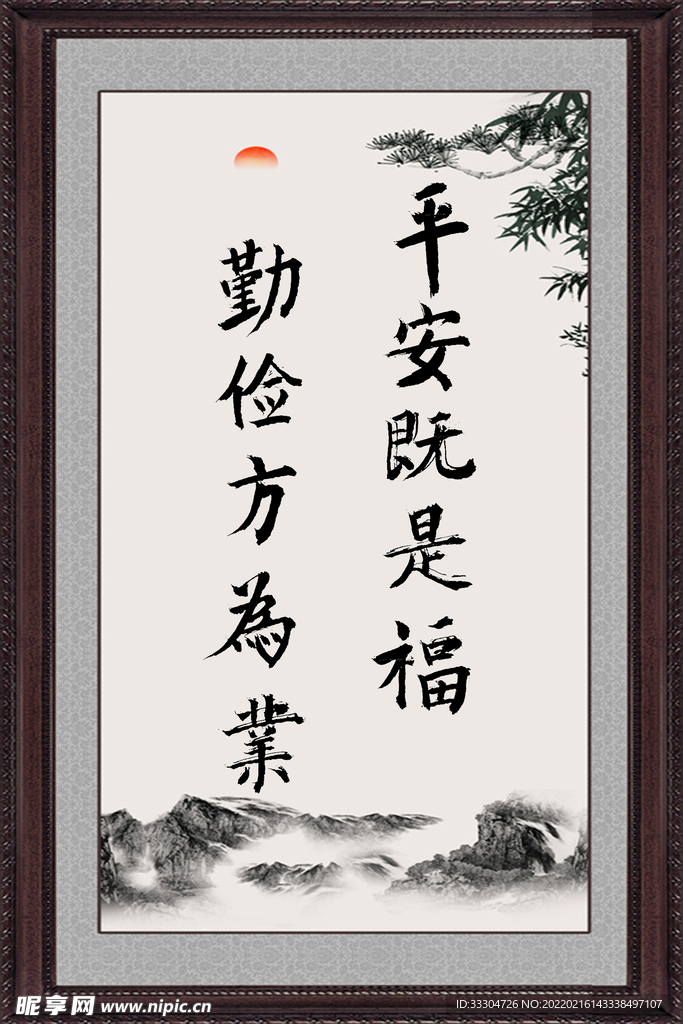 平安既是福
勤俭方為業
昵享网 www.nipic.cn
ID:33304726 NO:20220216143338497107